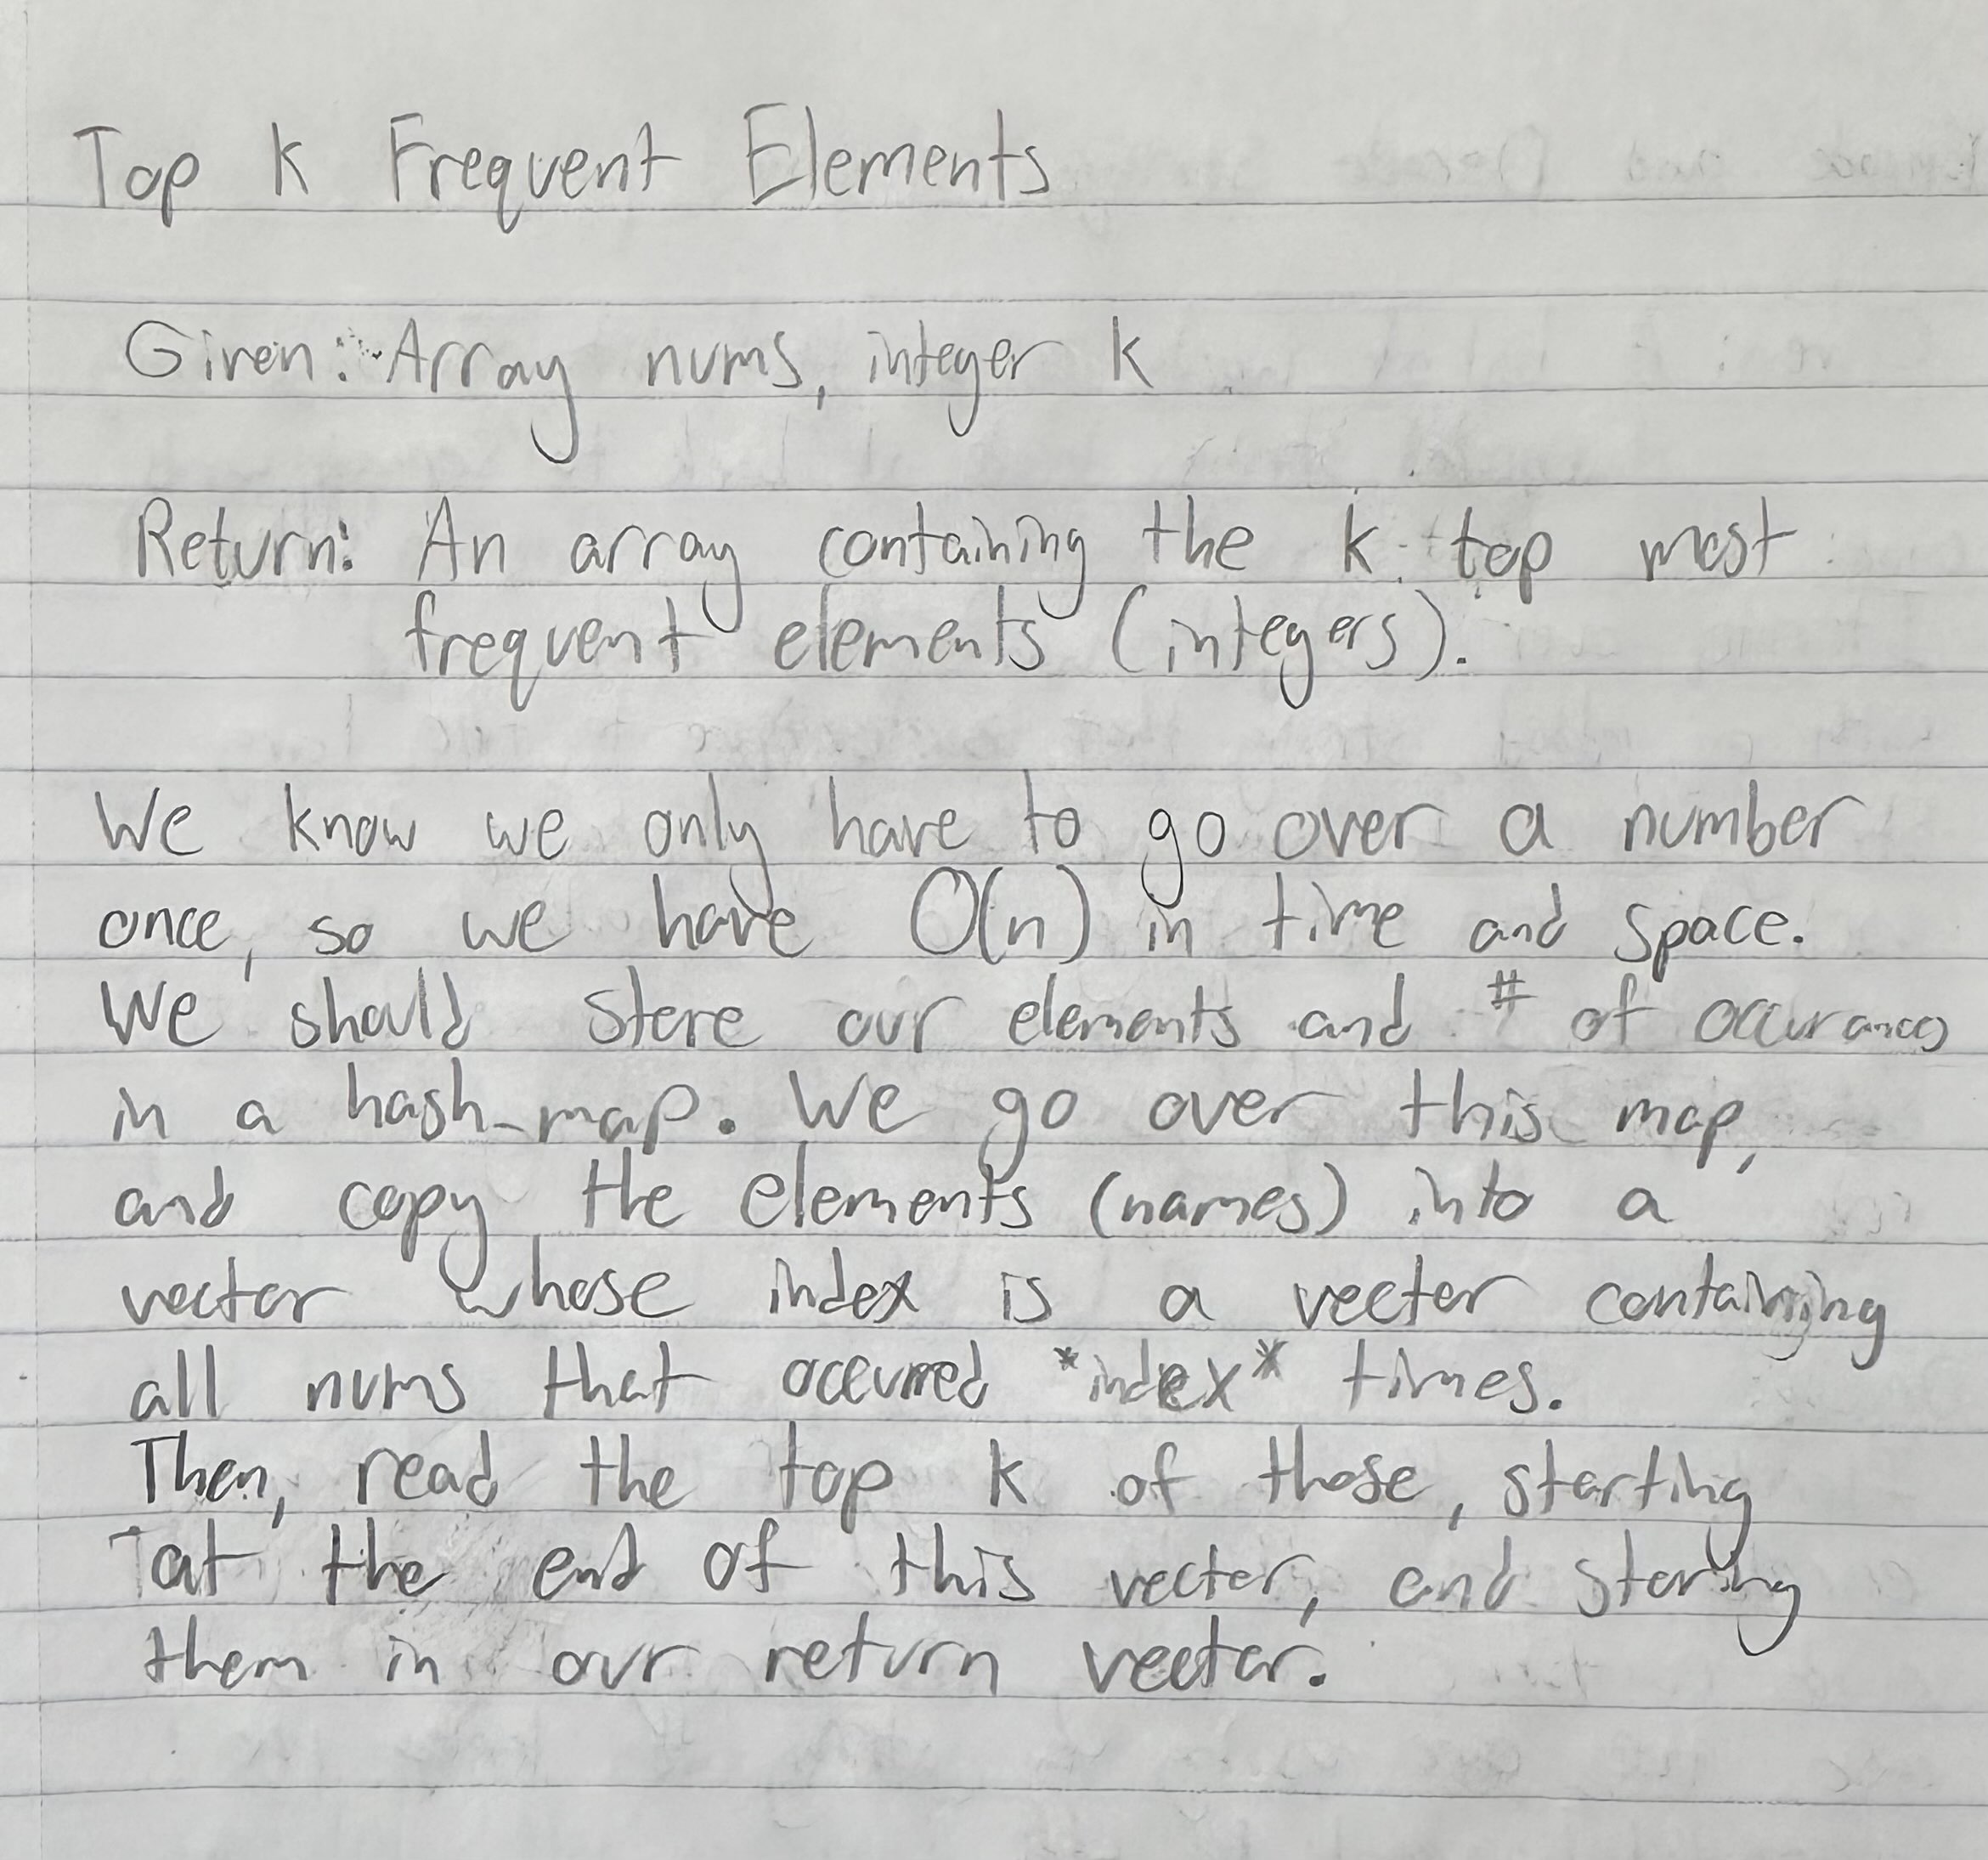 Top K Frequent Elements
Given: Array nums, integer k
Return: An array containing the k top most
frequent elements (integers).
We know we only have to go over a number
once, so we have O(n) in time and space.
We should store our elements and # of occurances
in a hash-map. We go over this map,
and copy the elements (names) into a
vector whose index is a vector containing
all nums that occurred *index* times.
Then, read the top k of those, starting
at the end of this vector, and storing
them in our return vector.